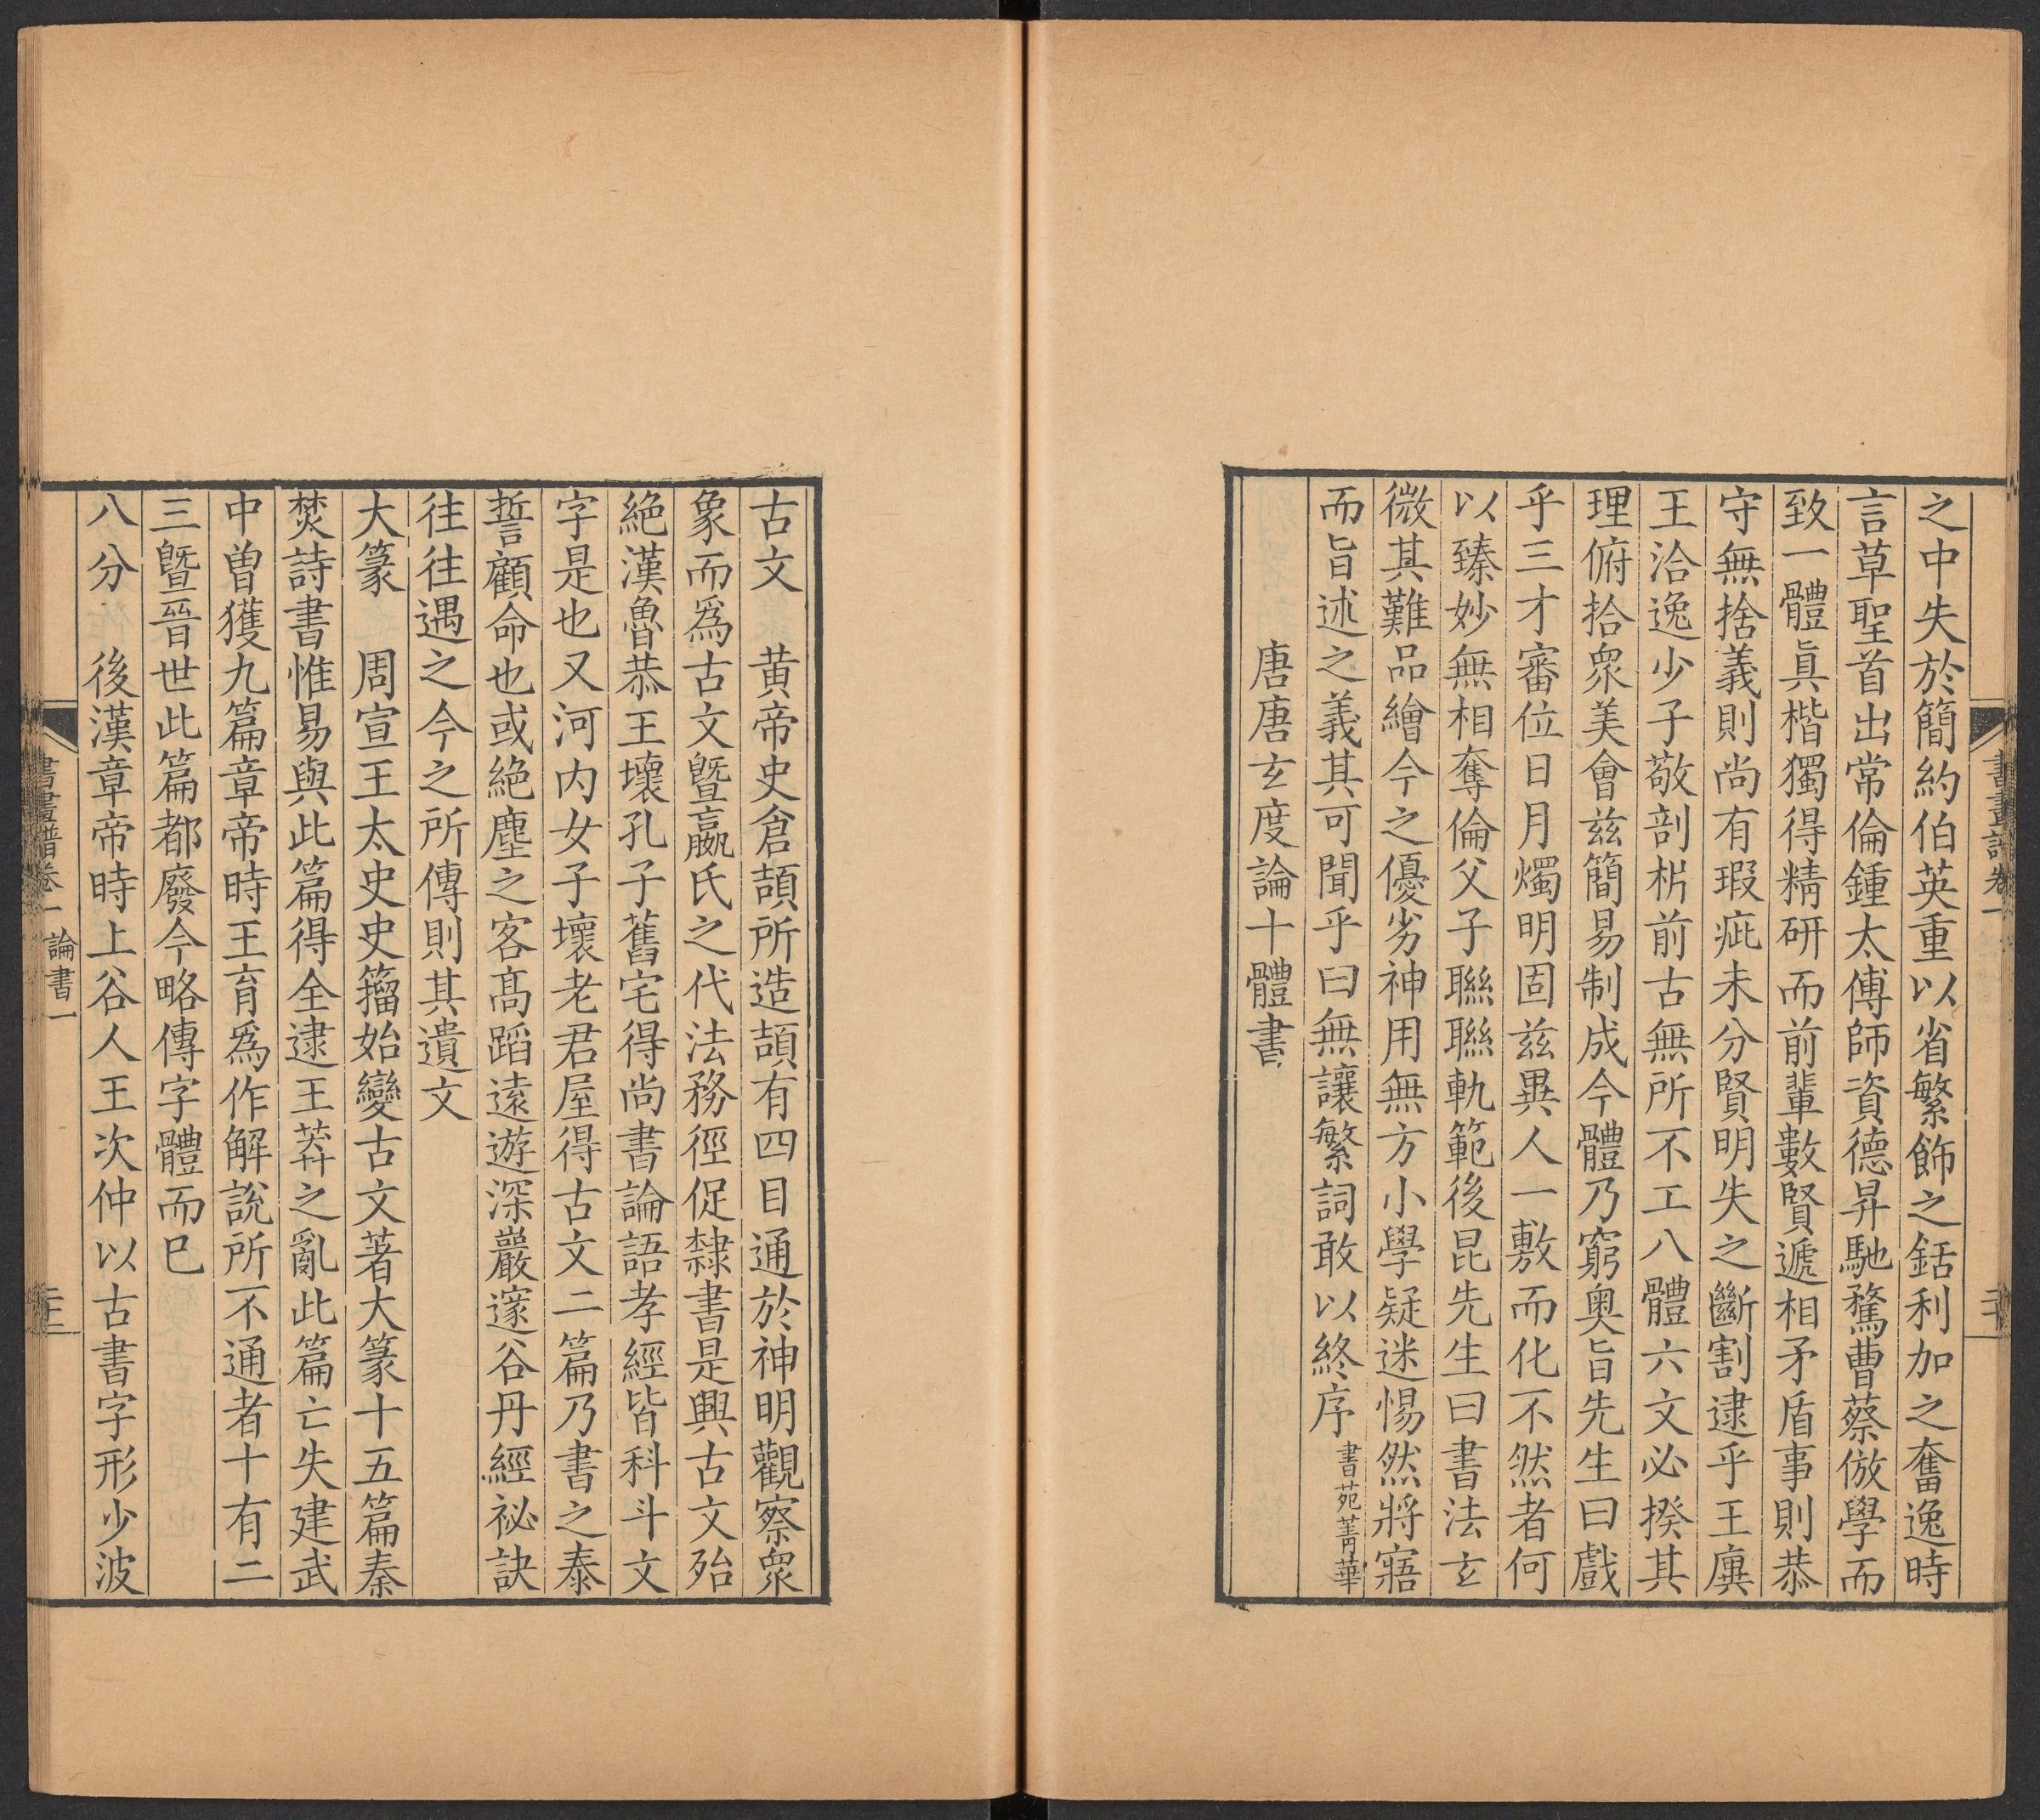 之中失於簡約伯英重以省繁飾之銛利加之奮逸時
言草聖首出常倫鍾太傅師資德昇馳騖曹蔡倣學而
致一體眞楷獨得精研而前輩數賢遞相矛盾事則恭
守無捨義則尚有瑕疵未分賢明失之斷割逮乎王廙
王洽逸少子敬剖析前古無所不工八體六文必揆其
理俯拾衆美會兹簡易制成今體乃窮奥旨先生曰戲
乎三才審位日月燭明固兹異人一敷而化不然者何
以臻妙無相奪倫父子聯聯軌範後昆先生曰書法玄
微其難品繪今之優劣神用無方小學疑迷惕然將寤
而旨述之義其可聞乎曰無讓繁詞敢以終序 書苑菁華
唐唐玄度論十體書
書畫譜卷一
二十
古文 黄帝史倉頡所造頡有四目通於神明觀察衆
象而爲古文曁嬴氏之代法務徑促隸書是興古文殆
絶漢魯恭王壞孔子舊宅得尚書論語孝經皆科斗文
字是也又河内女子壞老君屋得古文二篇乃書之泰
誓顧命也或絶塵之客髙蹈遠遊深巖邃谷丹經祕訣
往往遇之今之所傳則其遺文
大篆 周宣王太史史籀始變古文著大篆十五篇秦
焚詩書惟易與此篇得全逮王莽之亂此篇亡失建武
中曽獲九篇章帝時王育爲作解說所不通者十有二
三曁晉世此篇都廢今略傳字體而巳
八分 後漢章帝時上谷人王次仲以古書字形少波
書畫譜卷一 論書一